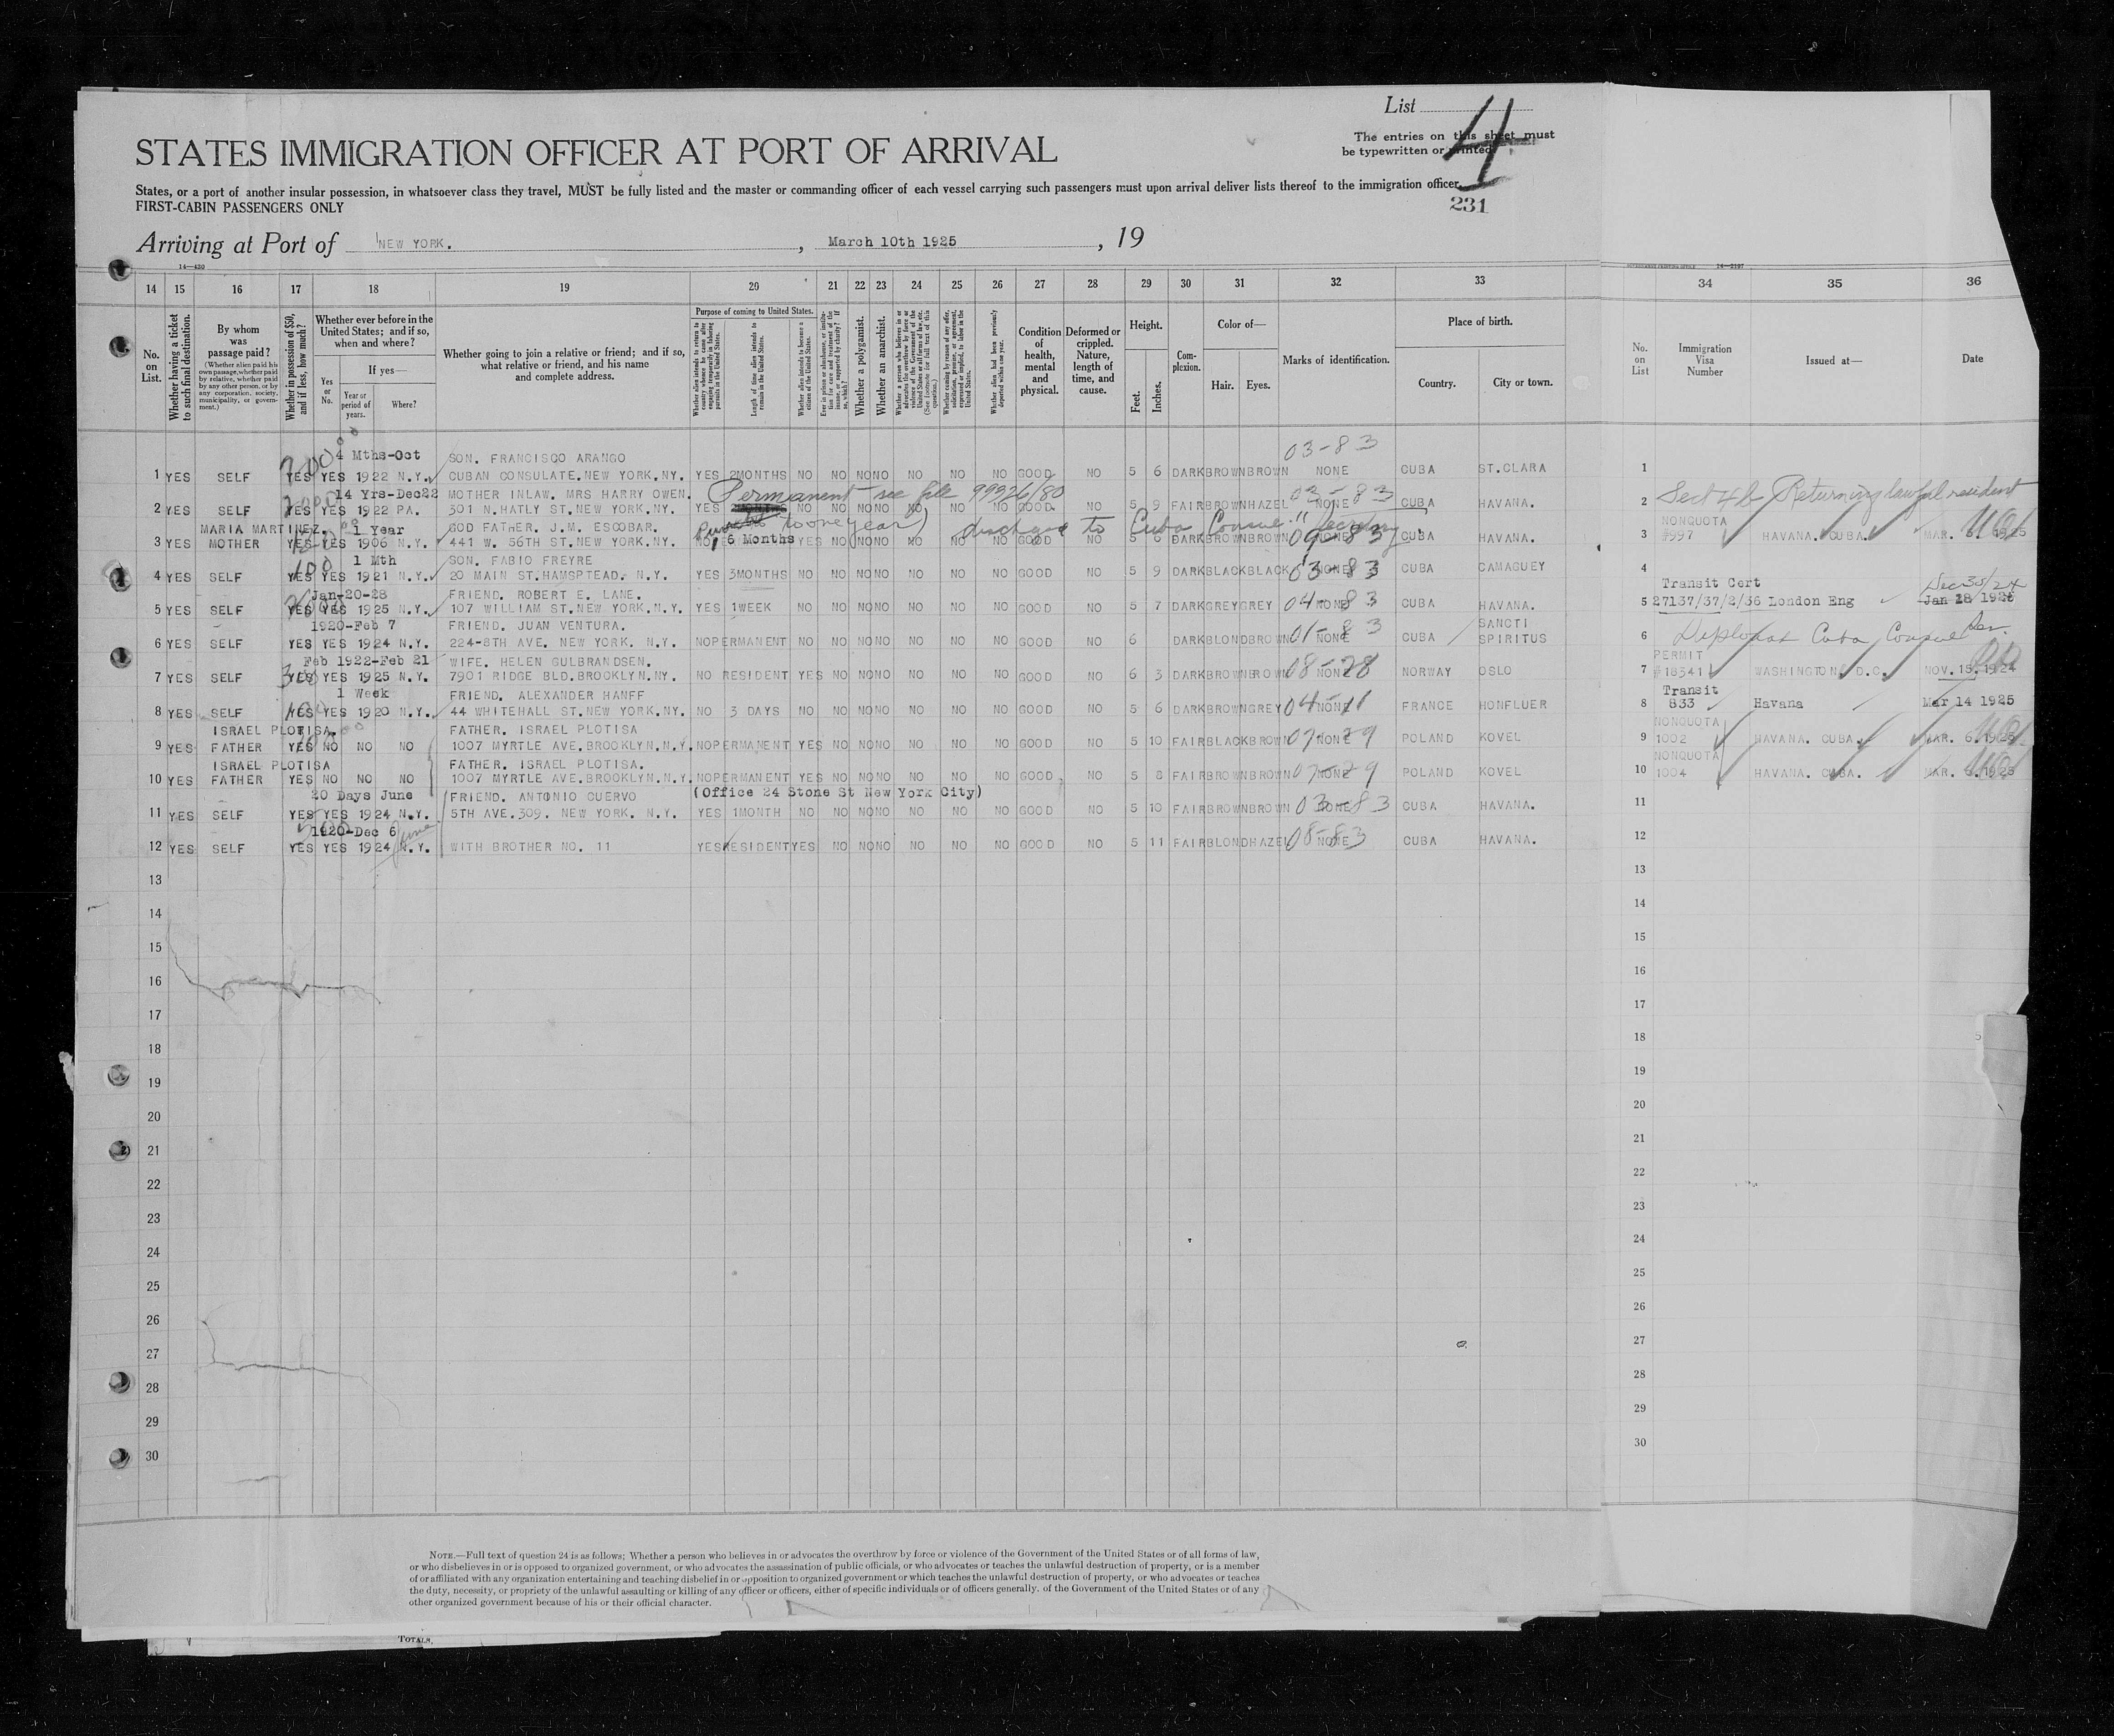 List 4
The entries on this sheet must
be typewritten or printed.
STATES IMMIGRATION OFFICER AT PORT OF ARRIVAL
States, or a port of another insular possession, in whatsoever class they travel, MUST be fully listed and the master or commanding officer of each vessel carrying such passengers must upon arrival deliver lists thereof to the immigration officer.
FIRST-CABIN PASSENGERS ONLY
231
Arriving at Port of NEW YORK. , March 10th 1925 , 19
14—430
14 15 16 17 18 19 20 21 22 23 24 25 26 27 28 29 30 31 32 33 34 35 36
No. on List.
Whether having a ticket to such final destination.
By whom was passage paid?
(Whether alien paid his own passage, whether paid by relative, whether paid by any other person, or by any corporation, society, municipality, or government.)
Whether in possession of $50, and if less, how much?
Whether ever before in the United States; and if so, when and where?
Yes or No.
If yes—
Year or period of years.
Where?
Whether going to join a relative or friend; and if so, what relative or friend, and his name and complete address.
Purpose of coming to United States.
Whether alien intends to return to country whence he came after engaging temporarily in laboring pursuits in the United States.
Length of time alien intends to remain in the United States.
Whether alien intends to become a citizen of the United States.
Whether a polygamist.
Whether an anarchist.
Condition of health, mental and physical.
Deformed or crippled. Nature, length of time, and cause.
Height.
Feet. Inches.
Complexion.
Color of—
Hair. Eyes.
Marks of identification.
Place of birth.
Country. City or town.
No. on List
Immigration Visa Number
Issued at—
Date
03-83
4 Mths-Oct SON. FRANCISCO ARANGO
1 YES SELF YES YES 1922 N.Y. CUBAN CONSULATE.NEW YORK.NY. YES 2MONTHS NO NO NO NO NO NO NO GOOD NO 5 6 DARK BROWN BROWN NONE CUBA ST.CLARA 1
14 Yrs-Dec22 MOTHER INLAW. MRS HARRY OWEN. Permanent see file 99926/80 03-83 Sect 4b Returning lawful resident
2 YES SELF YES YES 1922 PA. 301 N.HATLY ST.NEW YORK.NY. YES NO NO NO NO NO NO NO GOOD NO 5 9 FAIR BROWN HAZEL NONE CUBA HAVANA. 2
MARIA MARTINEZ. 1 Year GOD FATHER. J.M. ESCOBAR. to one year) to Cuba Consul NONQUOTA
3 YES MOTHER YES YES 1906 N.Y. 441 W. 56TH ST.NEW YORK.NY. NO 6 Months YES NO NO NO NO NO NO GOOD NO 5 6 DARK BROWN BROWN NONE CUBA HAVANA. 3 #997 HAVANA. CUBA. MAR. 6.1925
100 1 Mth SON. FABIO FREYRE
4 YES SELF YES YES 1921 N.Y. 20 MAIN ST.HAMSPTEAD. N.Y. YES 3MONTHS NO NO NO NO NO NO NO GOOD NO 5 9 DARK BLACK BLACK 03-83 NONE CUBA CAMAGUEY 4
Jan-20-28 FRIEND. ROBERT E. LANE. Transit Cert Dec 30/24
5 YES SELF YES YES 1925 N.Y. 107 WILLIAM ST.NEW YORK.N.Y. YES 1WEEK NO NO NO NO NO NO NO GOOD NO 5 7 DARK GREY GREY 04-83 NONE CUBA HAVANA. 5 27137/37/2/36 London Eng Jan 28 1925
1920-Feb 7 FRIEND. JUAN VENTURA. SANCTI
6 YES SELF YES YES 1924 N.Y. 224-8TH AVE. NEW YORK. N.Y. NO PERMANENT NO NO NO NO NO NO NO GOOD NO 6 DARK BLOND BROWN 01-83 NONE CUBA SPIRITUS 6 Diplomat Cuba Consul
Feb 1922-Feb 21 WIFE. HELEN GULBRANDSEN. PERMIT
7 YES SELF YES YES 1925 N.Y. 7901 RIDGE BLD.BROOKLYN.NY. NO RESIDENT YES NO NO NO NO NO NO GOOD NO 6 3 DARK BROWN BROWN 08-28 NONE NORWAY OSLO 7 #18541 WASHINGTON. D.C. NOV.15.1924
1 Week FRIEND. ALEXANDER HANFF Transit
8 YES SELF YES YES 1920 N.Y. 44 WHITEHALL ST.NEW YORK.NY. NO 3 DAYS NO NO NO NO NO NO NO GOOD NO 5 6 DARK BROWN GREY 04-11 NONE FRANCE HONFLUER 8 833 Havana Mar 14 1925
ISRAEL PLOTISA. FATHER. ISRAEL PLOTISA NONQUOTA
9 YES FATHER YES NO NO NO 1007 MYRTLE AVE.BROOKLYN.N.Y. NO PERMANENT YES NO NO NO NO NO NO GOOD NO 5 10 FAIR BLACK BROWN 07-29 NONE POLAND KOVEL 9 1002 HAVANA. CUBA. MAR. 6.1925
ISRAEL PLOTISA FATHER. ISRAEL PLOTISA. NONQUOTA
10 YES FATHER YES NO NO NO 1007 MYRTLE AVE.BROOKLYN.N.Y. NO PERMANENT YES NO NO NO NO NO NO GOOD NO 5 8 FAIR BROWN BROWN 07-29 NONE POLAND KOVEL 10 1004 HAVANA. CUBA. MAR. 6.1925
20 Days June FRIEND. ANTONIO CUERVO (Office 24 Stone St New York City)
11 YES SELF YES YES 1924 N.Y. 5TH AVE.309. NEW YORK. N.Y. YES 1MONTH NO NO NO NO NO NO NO GOOD NO 5 10 FAIR BROWN BROWN 03-83 NONE CUBA HAVANA. 11
1920-Dec 6 June
12 YES SELF YES YES 1924 N.Y. WITH BROTHER NO. 11 YES RESIDENT YES NO NO NO NO NO NO GOOD NO 5 11 FAIR BLOND HAZEL 08-83 NONE CUBA HAVANA. 12
13 13
14 14
15 15
16 16
17 17
18 18
19 19
20 20
21 21
22 22
23 23
24 24
25 25
26 26
27 27
28 28
29 29
30 30
NOTE.—Full text of question 24 is as follows: Whether a person who believes in or advocates the overthrow by force or violence of the Government of the United States or of all forms of law,
or who disbelieves in or is opposed to organized government, or who advocates the assassination of public officials, or who advocates or teaches the unlawful destruction of property, or is a member
of or affiliated with any organization entertaining and teaching disbelief in or opposition to organized government or which teaches the unlawful destruction of property, or who advocates or teaches
the duty, necessity, or propriety of the unlawful assaulting or killing of any officer or officers, either of specific individuals or of officers generally, of the Government of the United States or of any
other organized government because of his or their official character.
TOTALS,